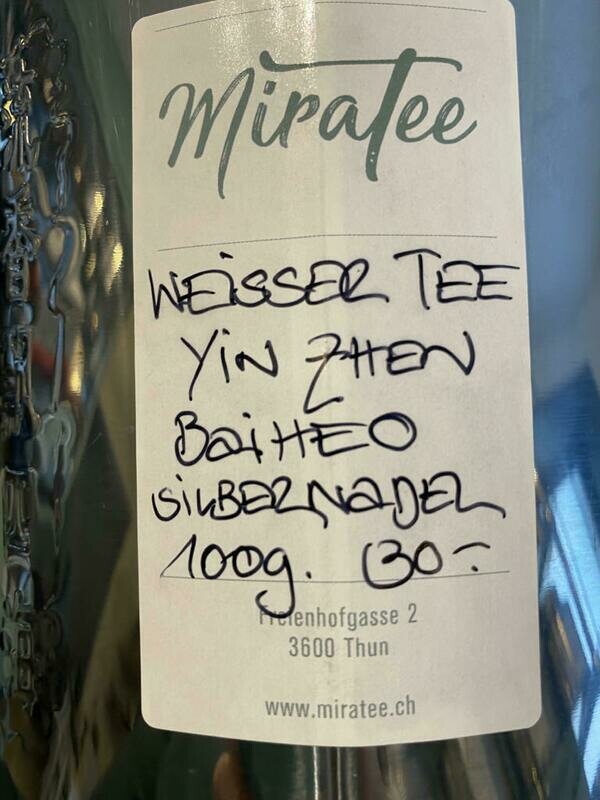 MiraTee
WEISSER TEE
YIN ZHEN
BaiHEO
SILBERNADEL
100g. (30.-
Freienhofgasse 2
3600 Thun
www.miratee.ch